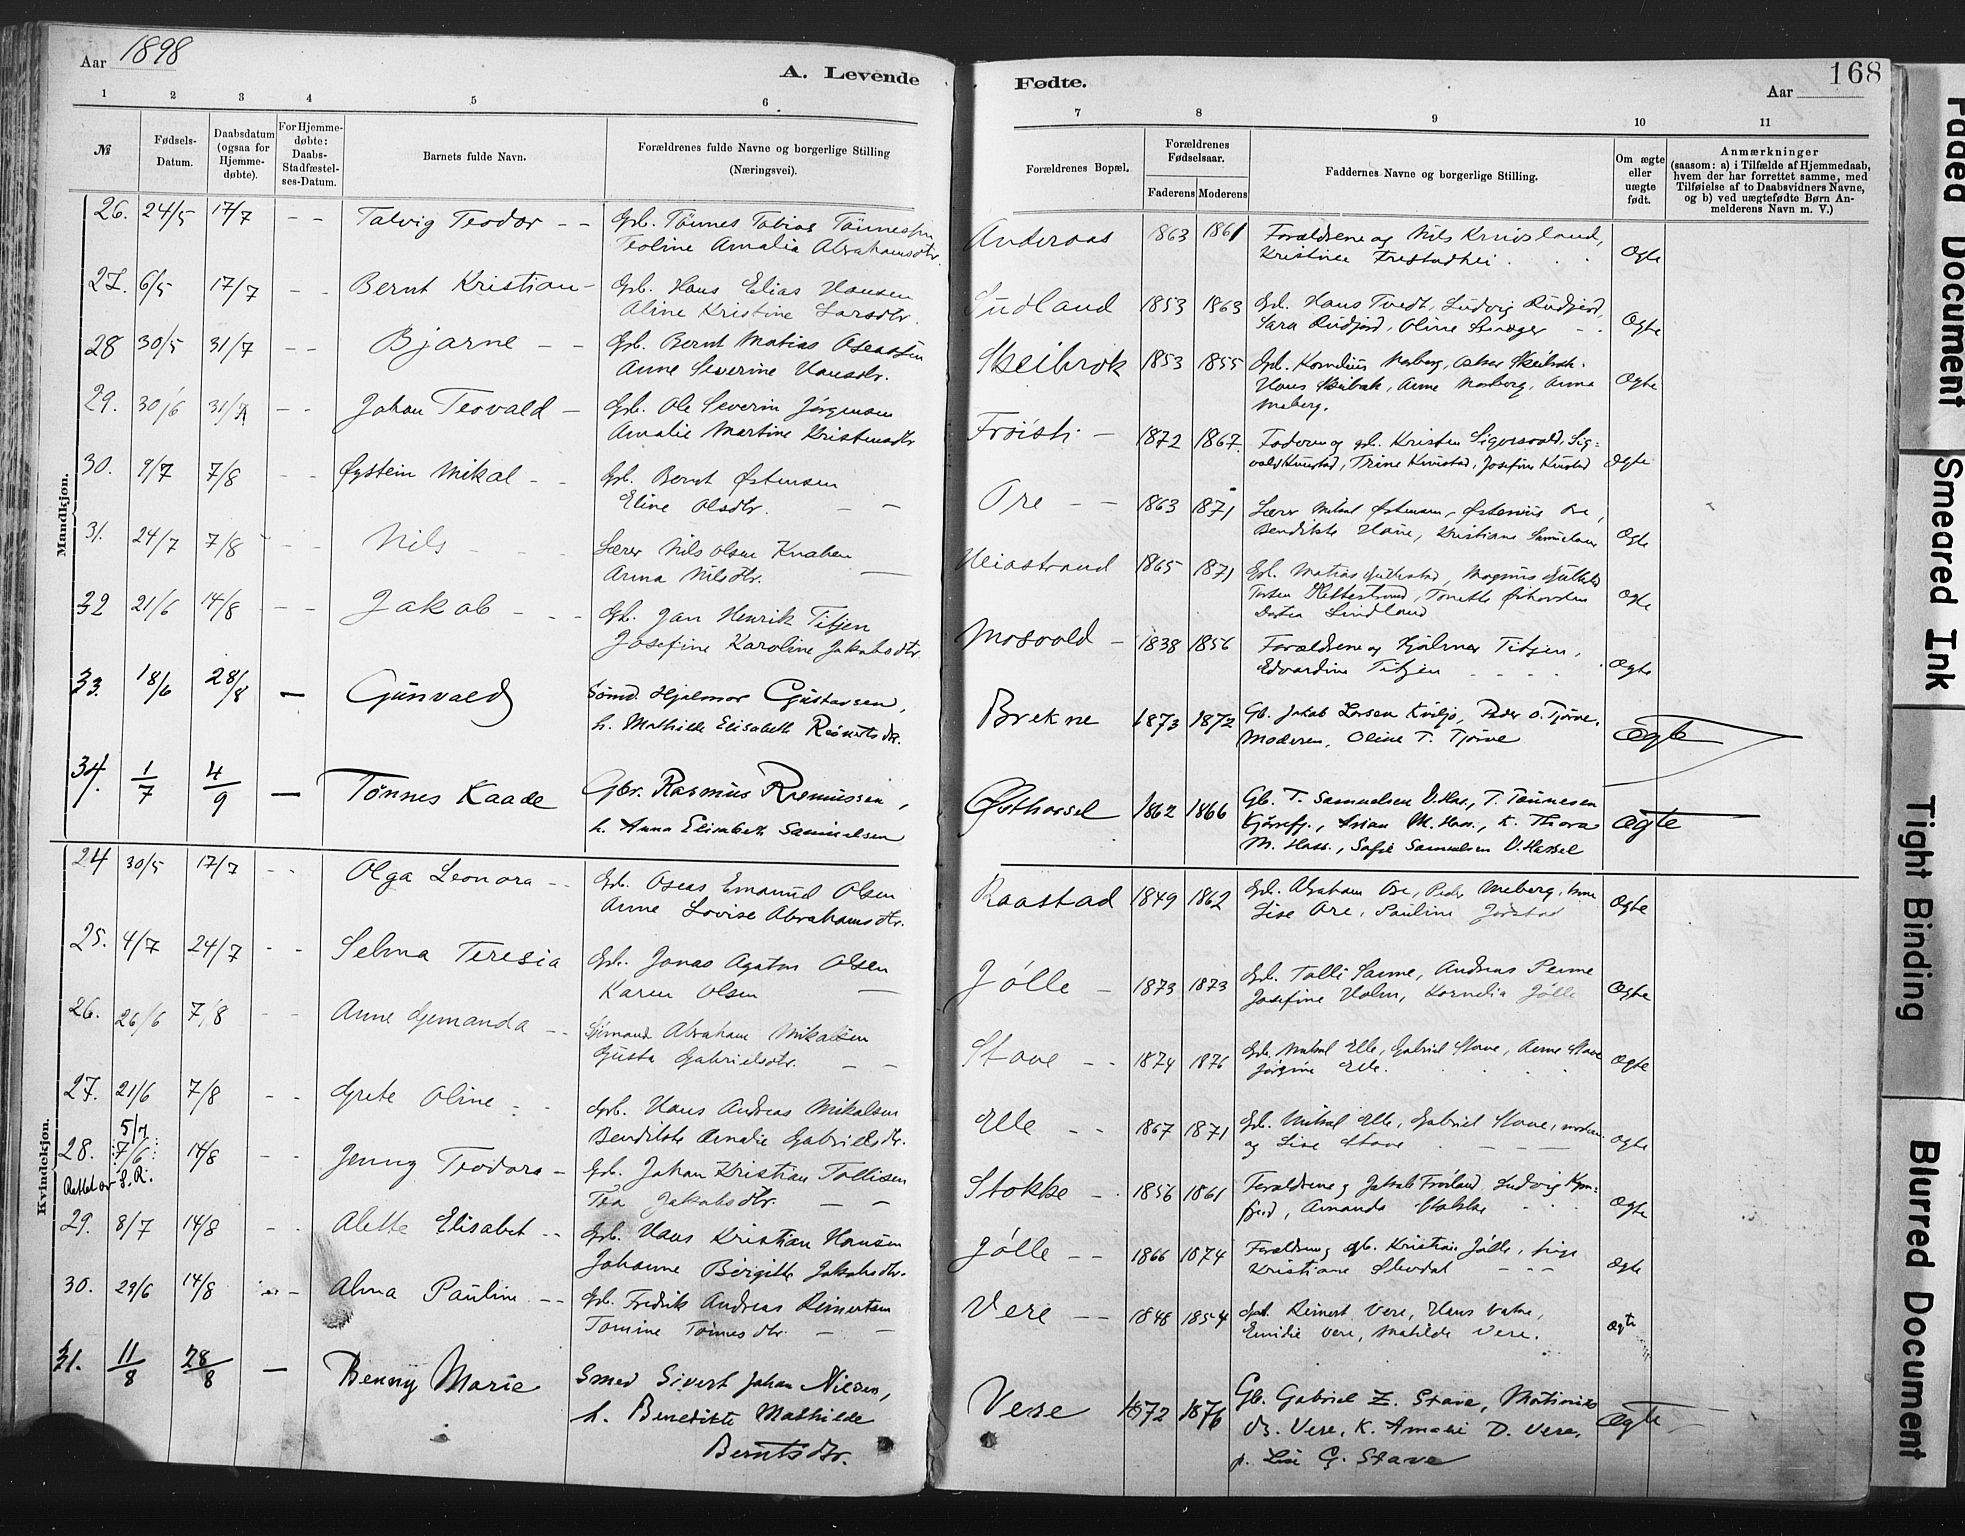 Aar 1898
A. Levende
1 2 3 4 5 6
№
Fødsels-Datum.
Daabsdatum (ogsaa for Hjemme-døbte).
For Hjemme-døbte: Daabs-Stadfæstel-ses-Datum.
Barnets fulde Navn.
Forældrenes fulde Navne og borgerlige Stilling (Næringsvei).
Mandkjøn.
26. 24/5 17/7 - - Talvig Teodor - - Gbr. Tønnes Tobias Tønnessen
Teoline Amalia Abrahamsdtr.
27. 6/5 17/7 - - Bernt Kristian - Gbr. Hans Elias Hansen
Aline Kristine Larsdtr.
28 30/5 31/7 - - Bjarne - - Gbr. Bernt Matias Oseassen
Anne Severine Hansdtr.
29. 30/6 31/7 - - Johan Teovald - Gbr. Ole Severin Jørgensen
Amalie Martine Kristensdtr
30. 9/7 7/8 - - Øystein Mikal - - Gbr. Bernt Østensen
Eline Olsdtr. - -
31. 24/7 7/8 - - Nils - - - Lærer Nils Olsen Knaben
Anna Nilsdtr. -
32 21/6 14/8 - - Jakob - - - Gbr. Jan Henrik Titjen
Josefine Karoline Jakobsdtr.
33. 18/6 28/8 - Gunvald Sømd. Hjalmar Gustavsen,
h. Mathilde Elisabeth Reinertsdtr.
34. 1/7 4/9 - Tønnes Kaade Gbr. Rasmus Rasmussen,
h. Anna Elisabeth Samuelsen
Kvindekjøn.
24 30/5 17/7 - - Olga Leonora - - Gbr. Oseas Emanuel Olsen
Anne Lovise Abrahamsdtr.
25. 4/7 24/7 - - Selma Teresia Gbr. Jonas Agaton Olsen
Karen Olsen -
26. 26/6 7/8 - - Anne Gemanda - - Sjømand Abraham Mikalsen
Gusta Gabrielsdtr. - -
27. 21/6 7/8 - - Grete Oline - - Gbr. Hans Andreas Mikalsen
Bendikte Amalie Gabrielsdtr.
5/7
28. 7/6 14/8 - - Jenny Teodora - Gbr. Johan Kristian Tollisen
Rettet av S.R. Tea Jakobsdtr - -
29. 8/7 14/8 - - Alette Elisabet - - Gbr. Hans Kristian Hansen
Johanne Birgitte Jakobsdtr.
30. 29/6 14/8 - - Alma Pauline - - Gbr. Fredrik Andreas Reinertsen
Tomine Tønnesdtr. - -
31. 11/8 28/8 - Benny Marie Smed Sivert Johan Nilsen,
h. Benedikte Mathilde
Berntsdtr.
Fødte.
168
Aar
7 8 9 10 11
Forældrenes Bopæl.
Forældrenes Fødselsaar.
Faderens Moderens
Faddernes Navne og borgerlige Stilling.
Om ægte eller uægte født.
Anmærkninger
(saasom: a) i Tilfælde af Hjemmedaab,
hvem der har forrettet samme, med
Tilføielse af to Daabsvidners Navne,
og b) ved uægtefødte Børn An-
melderens Navn m. V.)
Anderaas 1863 1861 Forældrene og Nils
Kristine Ægte
Sudland 1853 1863 Gbr. Hans Tvedt, Ludvig Rudjord,
Sara Rudjord, Oline Ægte
Skeibrok 1853 1855 Gbr. Kornelius Meberg,
Hans Skeibrok, Anne Meberg, Anna
Meberg. Ægte
Frøisti - 1872 1867. Faderen og gbr. Kristen Sigersvold, Sig-
vald Knustad, Trine Knustad, Josefine Knustad Ægte
Ore - - 1863 1871 Lærer Mikal Østensen, Østenius Ore,
Bendikte Haue, Kristiane Ægte
Heiastrand 1865 1871 Gbr. Matias
Lindland Ægte
Mosvold - 1838 1856 Forældrene og Hjalmar Titjen,
Edvardine Titjen - - - - Ægte
Brekne 1873 1872 Gb. Jakob Larsen Kviljo, Peder O. Tjørve,
Moderen, Oline T. Tjørve Ægte
Østhassel 1862 1866 Gb. T. Samuelsen V. Has., T. Tønnesen
M. Hass., K. Thora
M. Hass., Sofie Samuelsen V. Hassel Ægte
Raastad 1849 1862 Gbr. Abraham Ore, Peder Meberg,
Lise Ore, Pauline Jørstad Ægte
Jølle - 1873 1873 Gbr. Tolli Sanne, Andreas Penne
Josefine Holm, Kornelia Jølle Ægte
Stave - - 1874 1876 Gbr. Mikal Elle, Gabriel Stave, Anne Stave
Jørgine Elle. Ægte
Elle - - 1867 1871 Gbr. Mikal Elle, Gabriel Stave, moderen
og Lise Stave - - - Ægte
Stokke - 1856 1861 Forældrene og Jakob Frøiland, Ludvig
Amanda Stokke Ægte
Jølle - - 1866 1874 Forældrene og gbr. Kristian Jølle,
Kristiane - - - Ægte
Vere - - 1848 1854 Gbr. Reinert Vere, Hans Vatne,
Emilie Vere, Matilde Vere. Ægte
Vere 1872 1876 Gb. Gabriel Z. Stave,
B. Vere, K. Amalie D. Vere,
p. Lise G. Stave Ægte
Faded Document
Smeared Ink
Tight Binding
Blurred Document